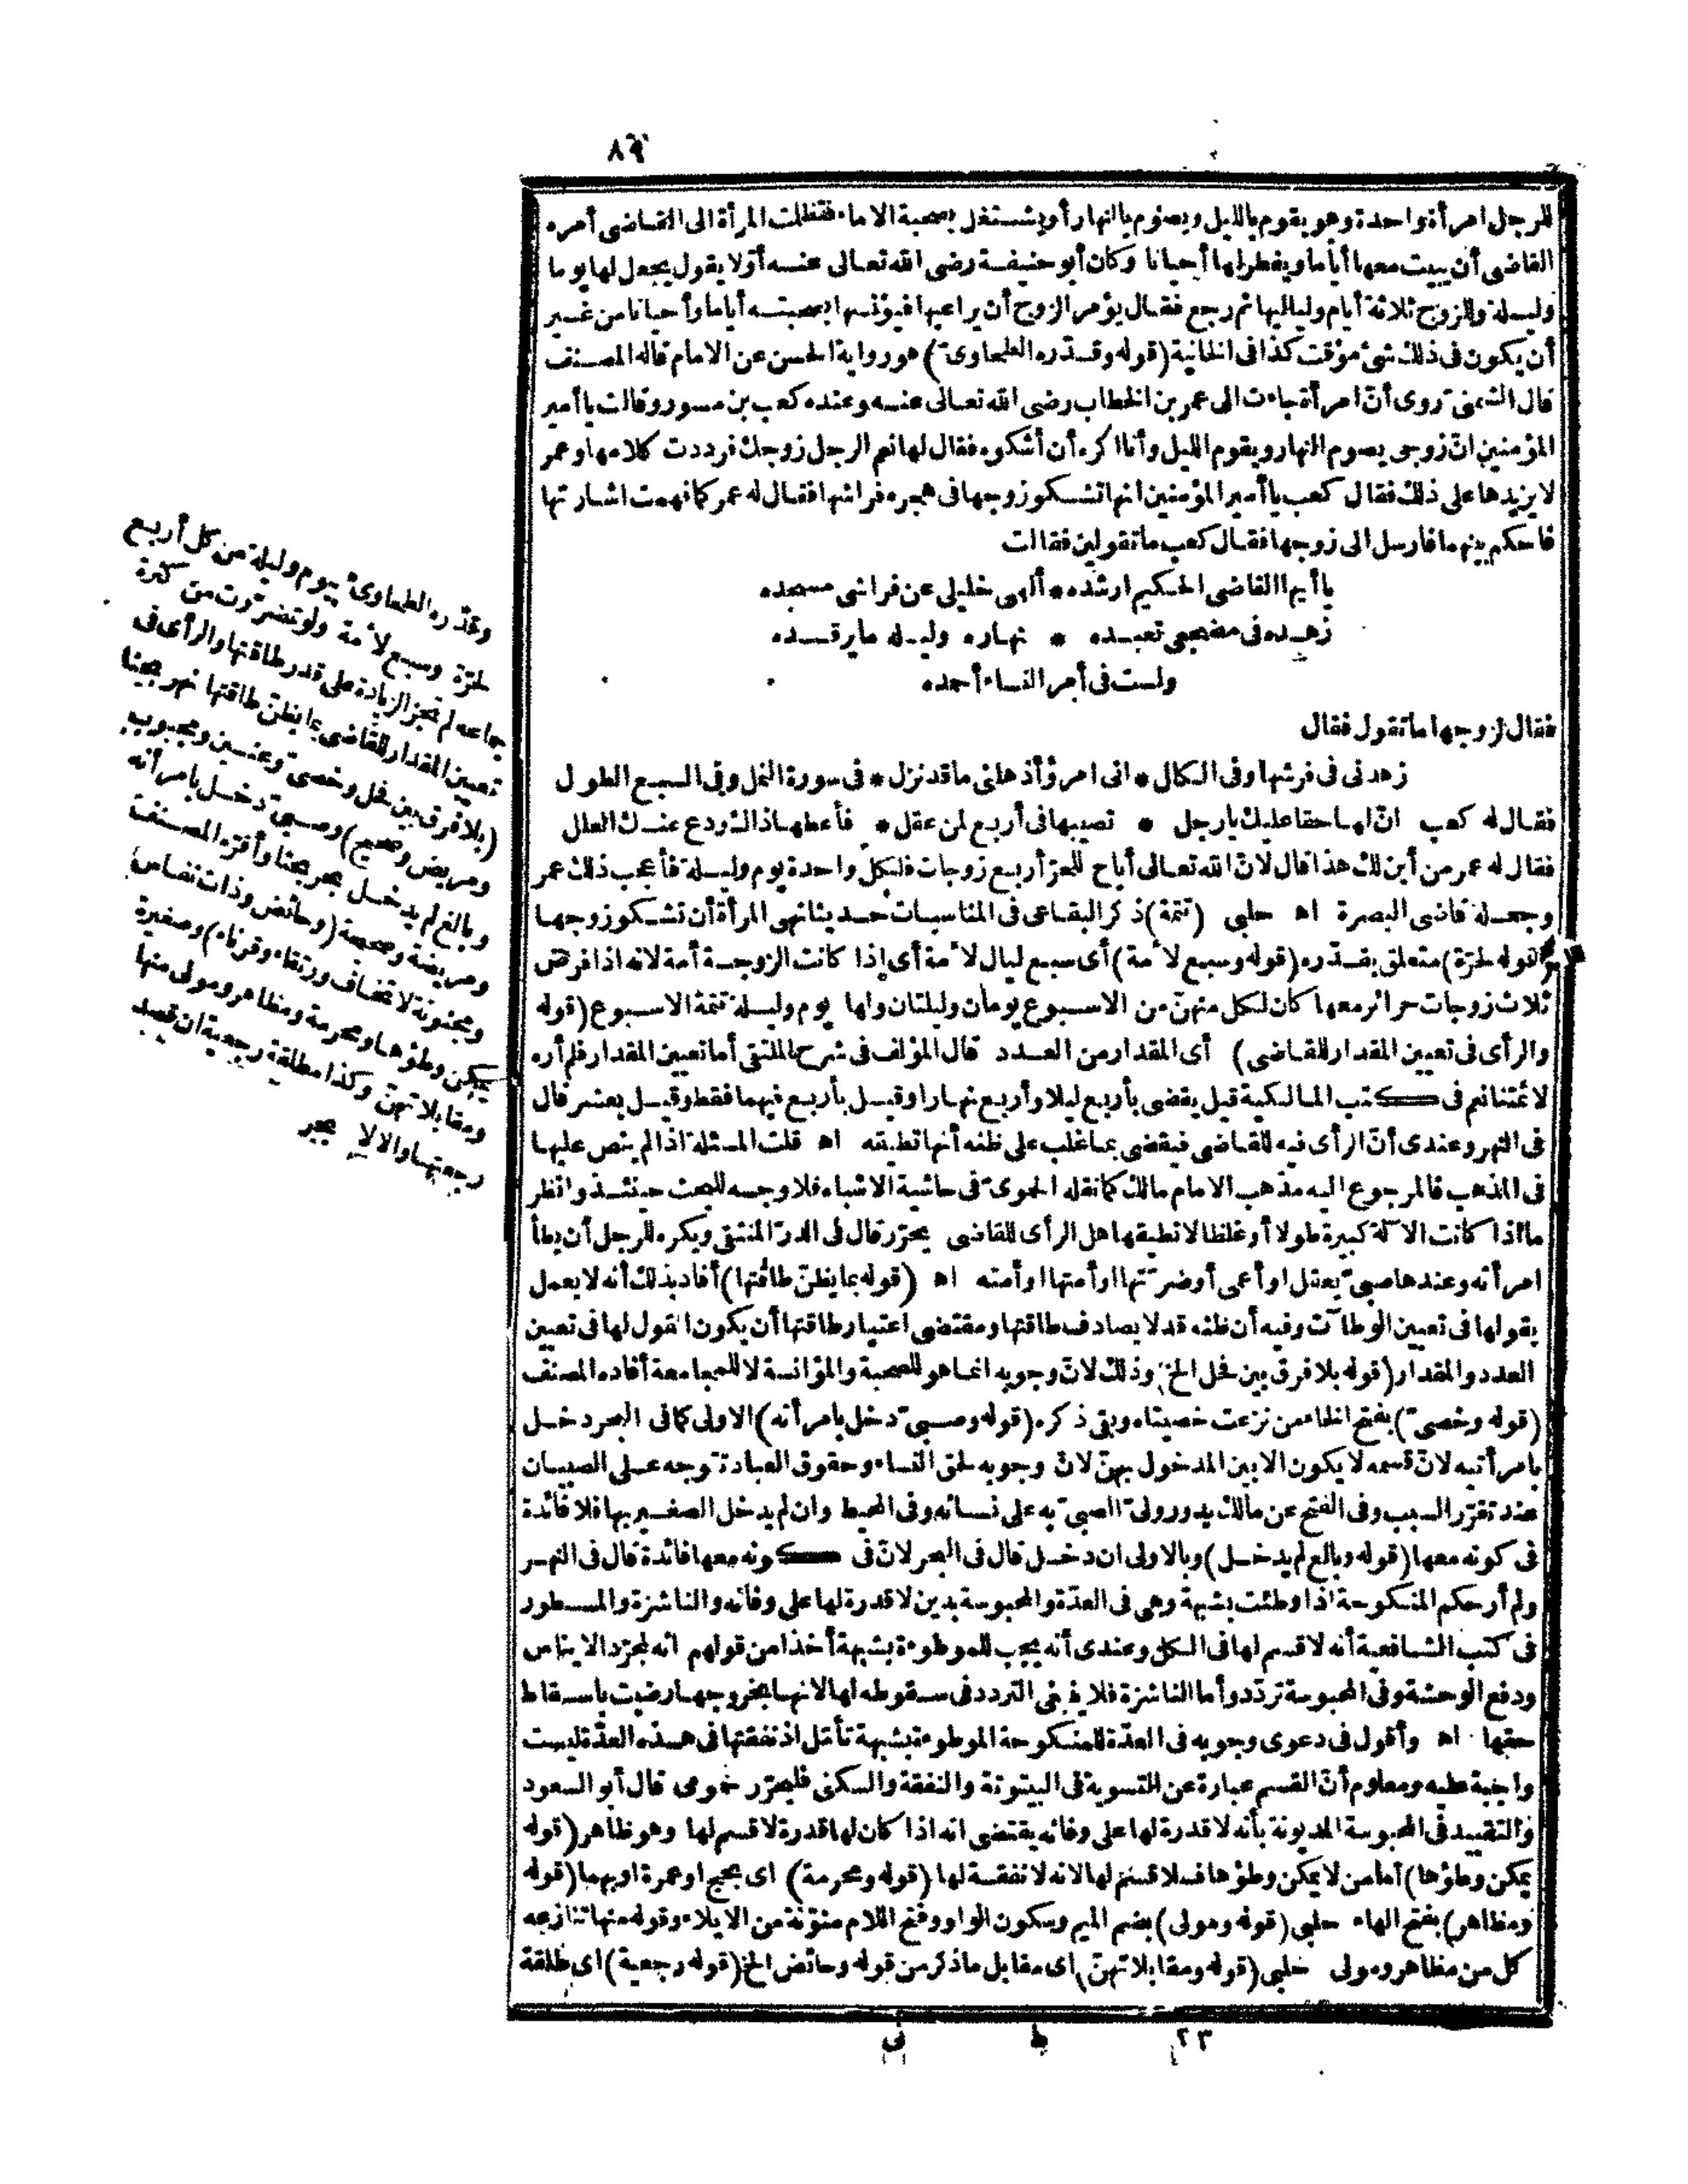 ٨٩
للرجل امرأة واحدة وهو يقوم بالليل ويصوم بالنهار أو يشتغل بصحبة الاماء فتظلمت المرأة الى القاضى أمره
القاضى أن يبيت معها أياما ويفطر لها أحيانا وكان أبو حنيفة رضى الله تعالى عنه أوّلا يقول يجعل لها يوما
وليلة وللزوج ثلاثة أيام ولياليها ثم رجع فقال يؤمر الزوج أن يراعيها فيؤنسها بصحبته أياما وأحيانا من غير
أن يكون فى ذلك شئ مؤقت كذا فى الخانية (قوله وقدّره الطحاوىّ) هو رواية الحسن عن الامام قاله المصنف
قال الشمنىّ روى أنّ امرأة جاءت الى عمر بن الخطاب رضى الله تعالى عنه وعنده كعب بن مسور وقالت يا أمير
المؤمنين انّ زوجى يصوم النهار ويقوم الليل وأنا اكره أن أشكوه فقال لها نعم الرجل زوجك فرددت كلامها وعمر
لا يزيدها على ذلك فقال كعب يا أمير المؤمنين انها تشكو زوجها فى هجره فراشها فقال له عمر كما فهمت اشارتها
فاحكم بينهما فأرسل الى زوجها فقال كعب ما تقولين فقالت
يا أيها القاضى الحكيم ارشده * ألهى خليلى عن فراشى مسجده
زهده فى مضجعى تعبده * نهاره وليله ما يرقده
ولست فى أمر النساء أحمده
فقال لزوجها ما تقول فقال
زهدنى فى فرشها وفى الكال * انى امرؤ أذهلنى ما قد نزل * فى سورة النمل وفى السبع الطول
فقال له كعب انّ لها حقا عليك يا رجل * تصيبها فى أربع لمن عقل * فأعطها ذاك ودع عنك العلل
فقال له عمر من أين لك هذا قال لانّ الله تعالى أباح للحرّ أربع زوجات فلكل واحدة يوم وليلة فأعجب ذلك عمر
وجعله قاضى البصرة اه حلبى (تتمة) ذكر البقاعى فى المناسبات حديثا نهى المرأة أن تشكو زوجها
(قوله لحرّة) متعلق بقدّره (قوله وسبع لامة) أى سبع ليال لامة أى اذا كانت الزوجة أمة لانه اذا فرض
ثلاث زوجات حرائر معها كان لكل منهنّ من الاسبوع يومان وليلتان ولها يوم وليلة تتمة الاسبوع (قوله
والرأى فى تعيين المقدار للقاضى) أى المقدار من العدد قال المؤلف فى شرح الملتقى أما تعيين المقدار فلم أره
لائمتنا نعم فى كتب المالكية قيل يقضى بأربع ليلا وأربع نهارا وقيل بأربع فيهما فقط وقيل بعشر قال
فى النهر وعندى أنّ الرأى فيه للقاضى فيقضى بما غلب على ظنه أنها تطيقه اه قلت المسئلة اذا لم ينص عليها
فى المذهب فالمرجوع اليه مذهب الامام مالك كما نقله الحموىّ فى حاشية الاشباه فلا وجه للبحث حينئذ وانظر
ما اذا كانت الآلة كبيرة طولا أو غلظا لا تطيقها هل الرأى للقاضى يحرّر قال فى الدرّ المنتقى ويكره للرجل أن يطأ
امرأته وعندها صبىّ يعقل او أعمى أو ضرّتها او أمتها او أمته اه (قوله بما يظنّ طاقتها) أفاد بذلك أنه لا يعمل
بقولها فى تعيين الوطآت وفيه أن ظنه قد لا يصادف طاقتها ومقتضى اعتبار طاقتها أن يكون القول لها فى تعيين
العدد والمقدار (قوله بلا فرق بين فحل الخ) وذلك لانّ وجوبه انما هو للصحبة والمؤانسة لا للمجامعة أفاده المصنف
(قوله وخصىّ) بفتح الخاء من نزعت خصيتاه وبقى ذكره (قوله وصبىّ دخل بامرأته) الاولى كما فى البحر دخل
بامرأتيه لانّ قسمه لا يكون الا بين المدخول بهنّ لانّ وجوبه لحق النساء وحقوق العباد تتوجه على الصبيان
عند تقرّر السبب وفى الفتح عن مالك يدور ولىّ الصبىّ به على نسائه وفى المحيط وان لم يدخل الصغير بها فلا فائدة
فى كونه معها (قوله وبالغ لم يدخل) وبالاولى ان دخل قال فى البحر لانّ فى كونه معها فائدة قال فى النهر
ولم أر حكم المنكوحة اذا وطئت بشبهة وهى فى العدّة والمحبوسة بدين لا قدرة لها على وفائه والناشزة والمسطور
فى كتب الشافعية أنه لا قسم لها فى الكل وعندى أنه يجب للموطوءة بشبهة أخذا من قولهم انه لمجرّد الايناس
ودفع الوحشة وفى المحبوسة تردّد وأما الناشزة فلا ينبغى التردد فى سقوطه لها لانها بخروجها رضيت باسقاط
حقها اه وأقول فى دعوى وجوبه فى العدّة للمنكوحة الموطوءة بشبهة تأمّل اذ نفقتها فى هذه العدّة ليست
واجبة عليه ومعلوم أنّ القسم عبارة عن التسوية فى البيتوتة والنفقة والسكنى فليحرّر حموى قال أبو السعود
والتقييد فى المحبوسة المديونة بأنه لا قدرة لها على وفائه يقتضى انه اذا كان لها قدرة لا قسم لها وهو ظاهر (قوله
يمكن وطؤها) أما من لا يمكن وطؤها فلا قسم لها لانه لا نفقة لها (قوله ومحرمة) اى بحج او عمرة او بهما (قوله
ومظاهر) بفتح الهاء حلبى (قوله ومولى) بضم الميم وسكون الواو وفتح اللام منوّنة من الايلاء وقوله منها تنازعه
كل من مظاهر ومولى حلبى (قوله ومقابلاتهنّ) اى مقابل ما ذكر من قوله وحائض الخ (قوله رجعية) اى طلقة
٢٣ ط نى
وقدّره الطحاوىّ بيوم وليلة من كل أربع
لحرّة وسبع لأمة ولو تضرّرت من كثرة
جماعه لم تجز الزيادة على قدر طاقتها والرأى فى
تعيين المقدار للقاضى بما يظنّ طاقتها نهر بحثا
(بلا فرق بين فحل وخصىّ وعنين ومجبوب
ومريض وصحيح) وصبىّ دخل بامرأته
وبالغ لم يدخل بحر بحثا وأقرّه المصنف
ومريضة وصحيحة (وحائض وذات نفاس
ومجنونة لا تخاف ورتقاء وقرناء) وصغيرة
يمكن وطؤها ومحرمة ومظاهر ومولى منها
ومقابلاتهنّ وكذا مطلقة رجعية ان قصد
رجعتها والا لا بحر